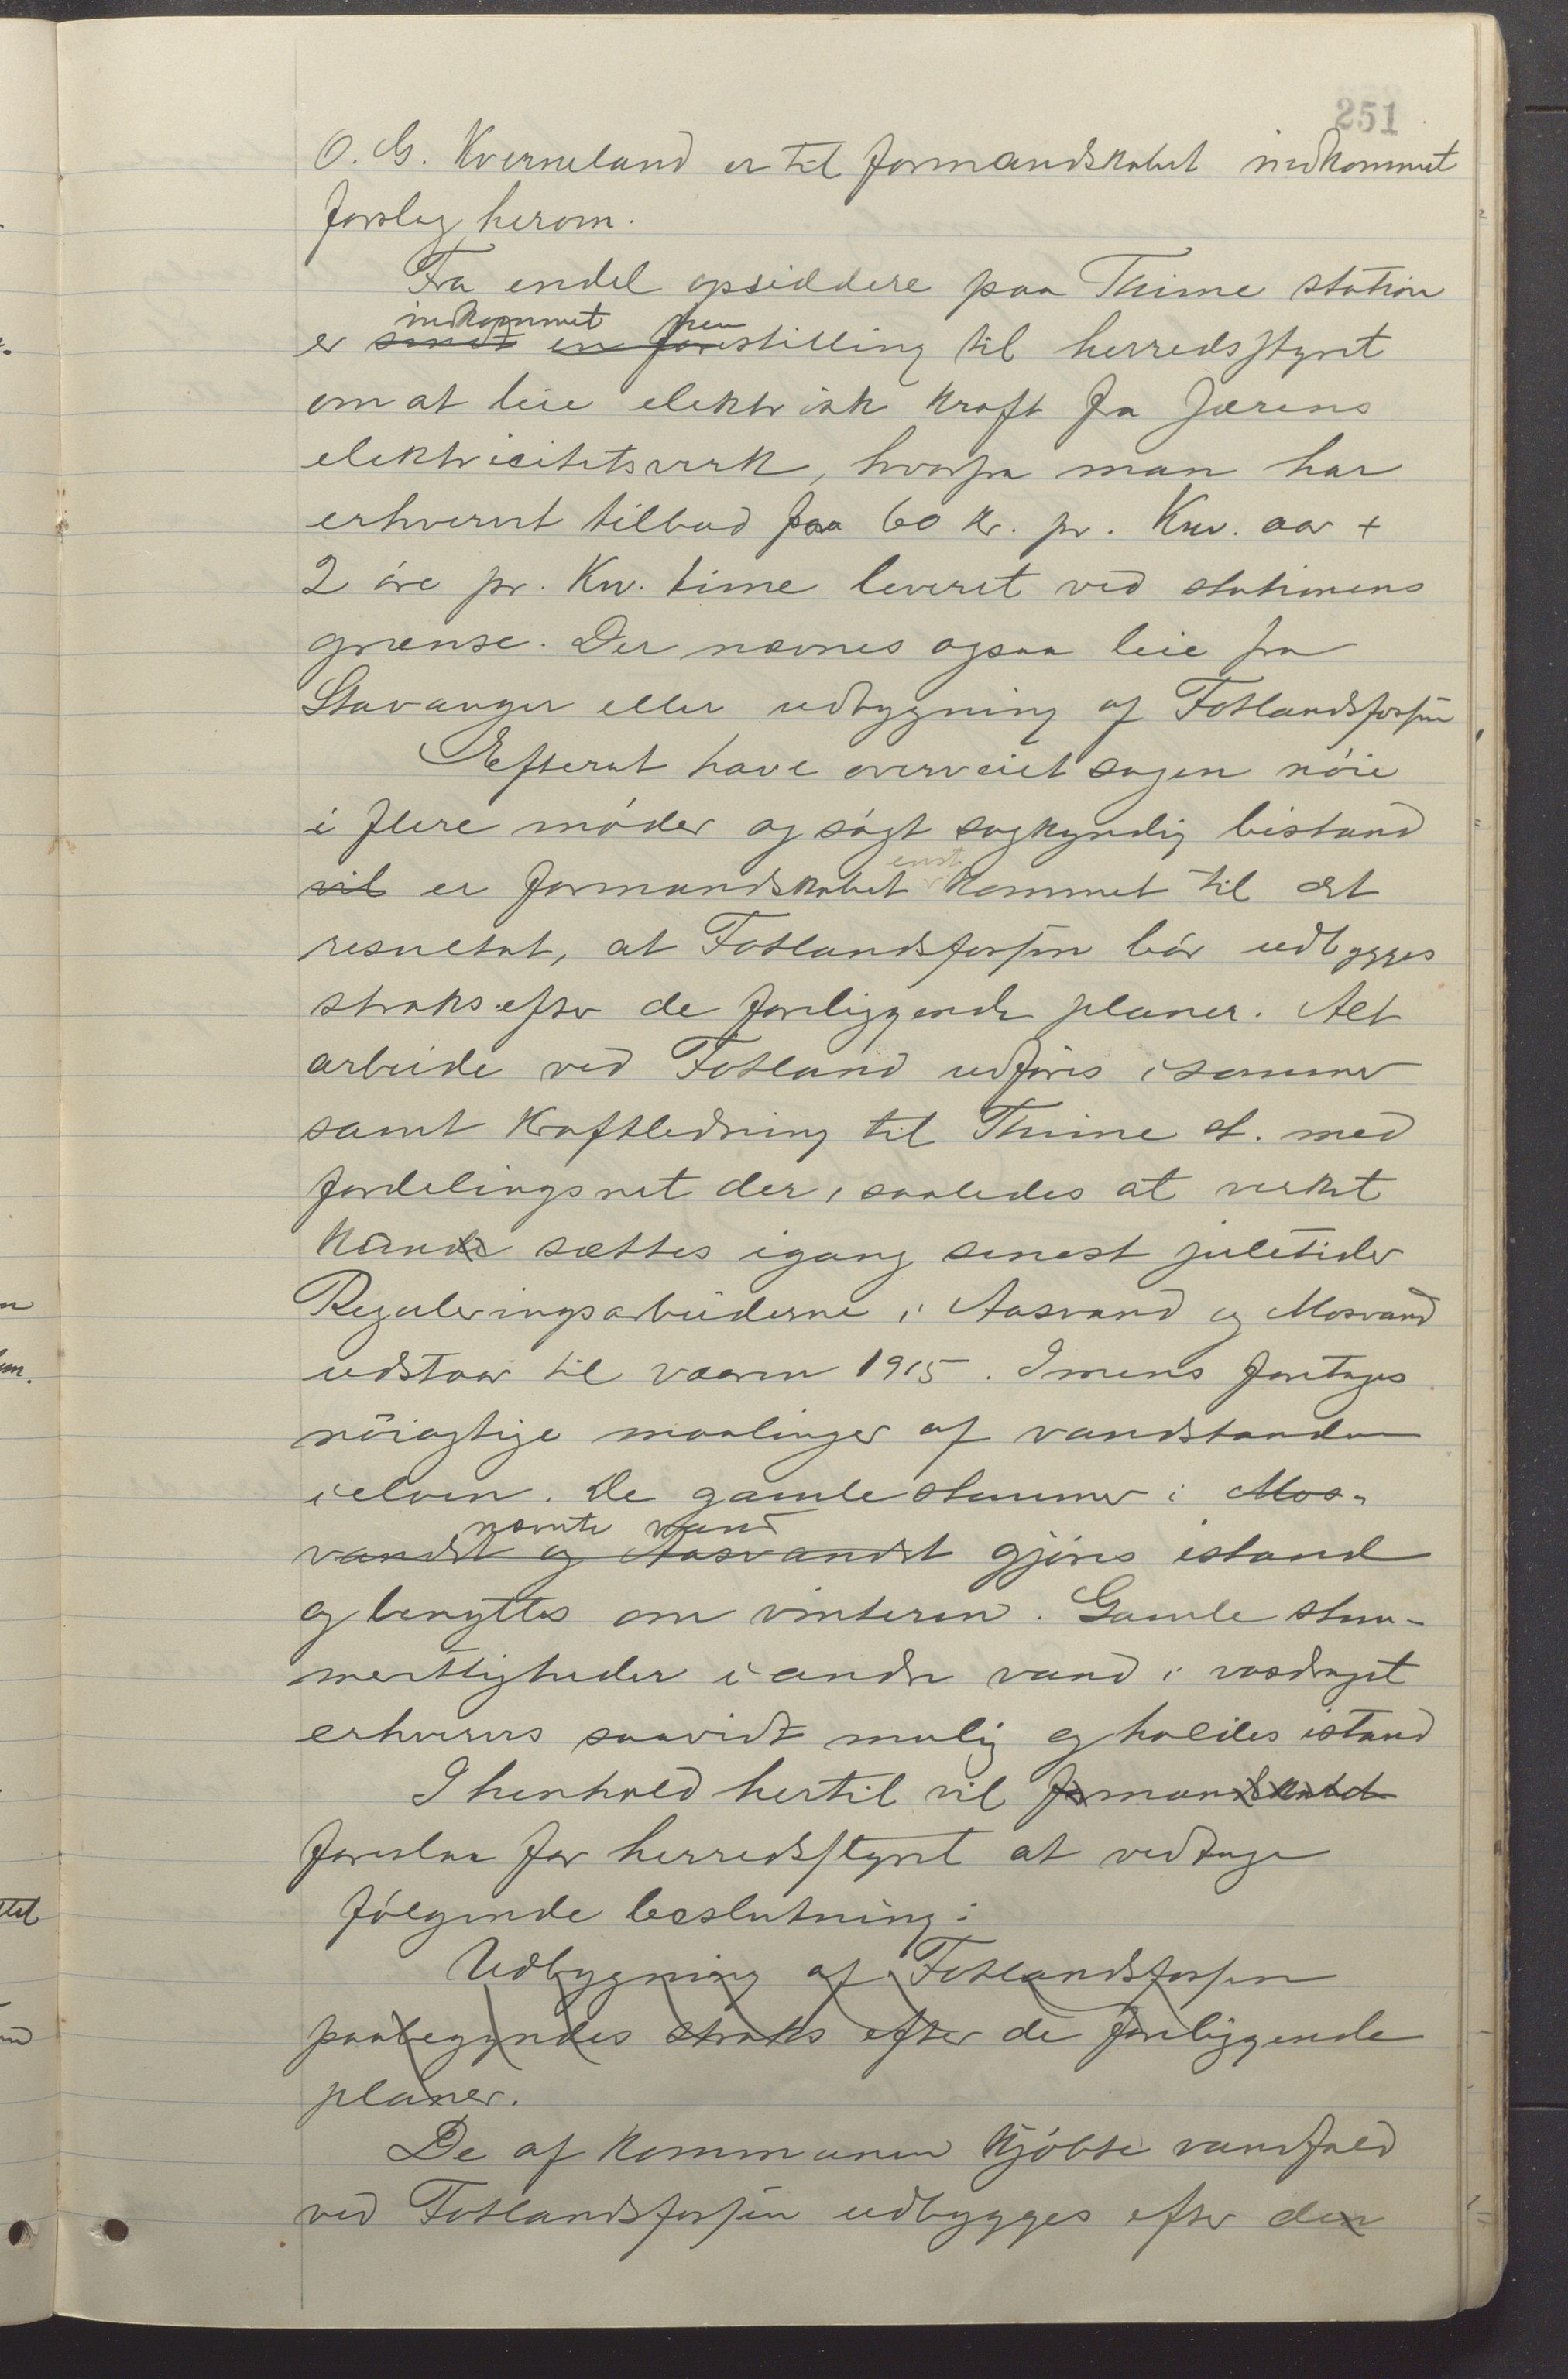 251
O. G. Kverneland er til formandskabet indkommet
forslag herom.
Fra endel opsiddere paa Thime station
indkommet hen
er sendt en forestilling til herredsstyret
om at leie elektrisk kraft fra Jærens
elektricitetsverk, hvorfra man har
erhvervet tilbud paa 60 kr. pr. Kw. aar +
2 øre pr. Kw. time leveret ved stationens
grænse. Der nævnes ogsaa leie fra
Stavanger eller udbygning af Fotlandsfossen
Efterat have overveiet sagen nøie
i flere møder og søgt sagkyndig bistand
enst
vil er formandskabet kommet til det
resultat, at Fotlandsfossen bør udbygges
straks efter de foreliggende planer. Alt
arbeide ved Fotland udføres isommer
samt kraftledning til Thime st. med
fordelingsnet der, saaledes at verket
kande sættes igang senest juletider
Reguleringsarbeiderne i Aasvand og Mosvand
udstaar til vaaren 1915. Imens foretages
nøiagtige maalinger af vandstanden
i elven. De gamle stemmer i Mos-
nævnte vand
vandet og Aasvandet gjøres istand
og benyttes om vinteren. Gamle stem-
merettigheder i andre vand i vasdraget
erhverves saavidt mulig og holdes istand
I henhold hertil vil formandskabet
foreslaa for herredsstyret at vedtage
følgende beslutning:
Udbygning af Fotlandsfossen
paabegyndes straks efter de foreliggende
planer.
De af kommunen kjøbte vandfald
ved Fotlandsfossen udbygges efter den